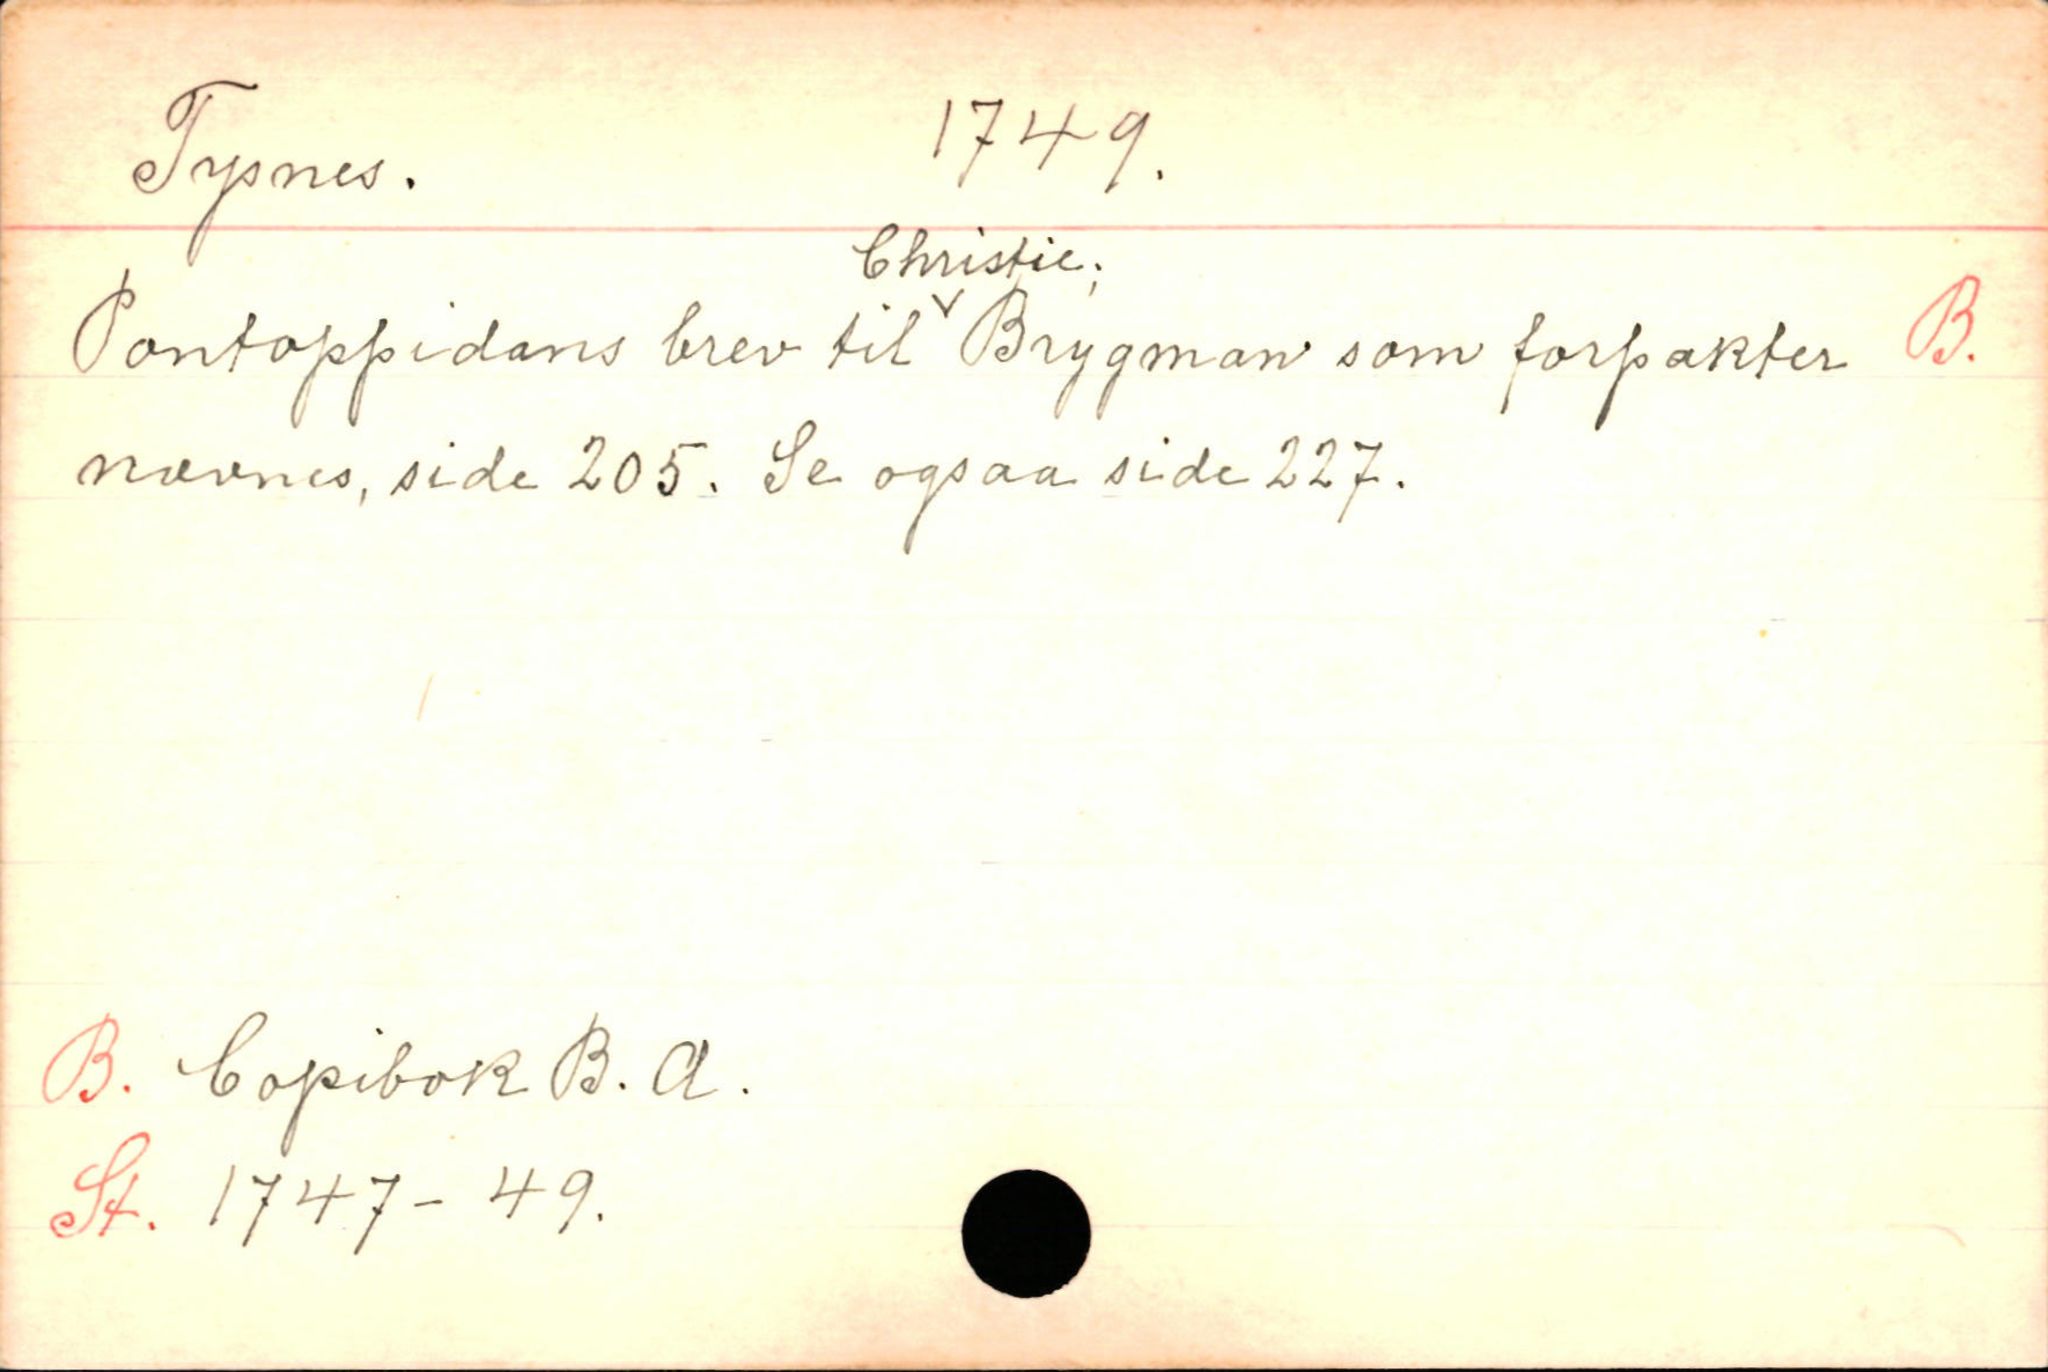 Tysnes. 1749.
Christie;
Pontoppidans brev til ᵛ Brygman som forpakter B.
nævnes, side 205. Se ogsaa side 227.
B. Copibok B. A.
St. 1747-49.